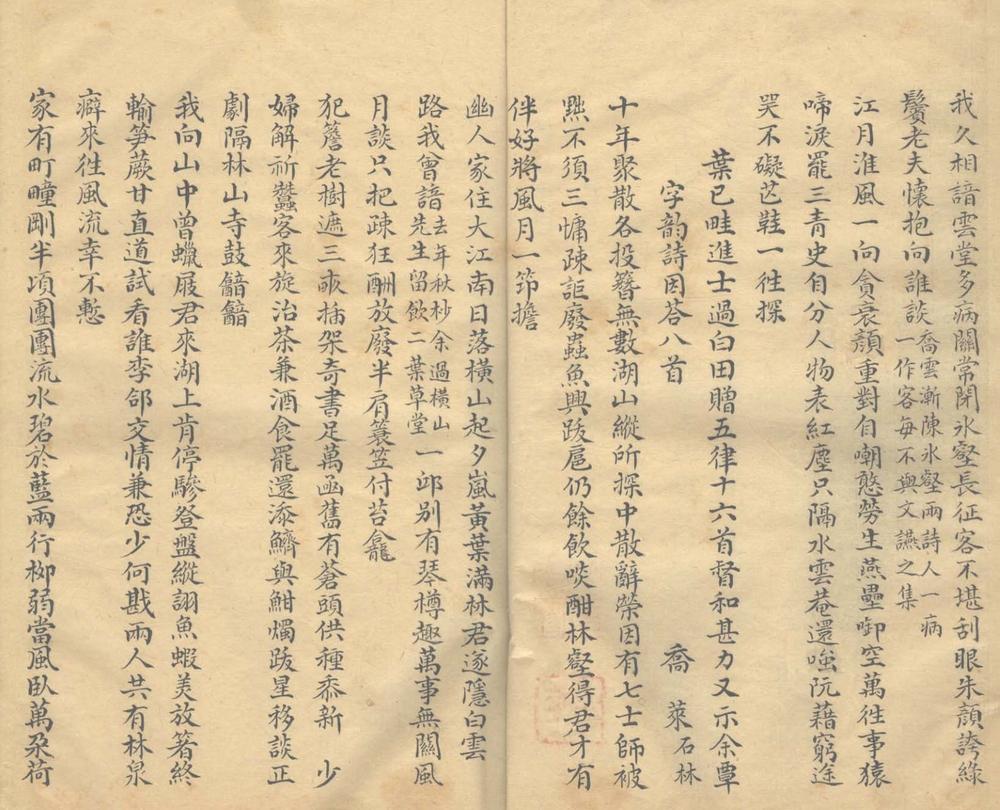 我久相諳雲堂多病關常閉氷壑長征客不堪刮眼朱顏誇綠
鬢老夫懷抱向誰談喬雲漸陳氷壑兩詩人一病一作客每不與文讌之集
江月淮風一向貪衰顏重對自嘲憨勞生燕壘啣空萬徃事猿
啼淚罷三青史自分人物表紅塵只隔水雲菴還嗤阮藉窮途
哭不礙芒鞋一徃探
葉已畦進士過白田贈五律十六首督和甚力又示余覃
字韵詩因荅八首
喬萊石林
十年聚散各投簮無數湖山縱所探中散辭榮因有七士師被
黜不須三慵疎詎廢蟲魚興跋扈仍餘飲啖酣林壑得君才有
伴好將風月一笻擔
幽人家住大江南日落橫山起夕嵐黃葉滿林君遂隱白雲
路我曾諳去年秋杪余過橫山先生留飲二葉草堂一邱别有琴樽趣萬事無關風
月談只把疎狂酬放廢半肩簑笠付苔龕
犯簷老樹遮三畝揷架奇書足萬函舊有蒼頭供種黍新 少
婦解祈蠶客來旋治茶兼酒食罷還添鱭與蚶燭跋星移談正
劇隔林山寺鼓韽韽
我向山中曾蠟屐君來湖上肯停驂登盤縱詡魚蝦美放箸終
輸笋蕨甘直道試看誰李郃交情兼恐少何戡兩人共有林泉
癖來徃風流幸不慙
家有町畽剛半頃團團流水碧於藍兩行柳弱當風臥萬朶荷